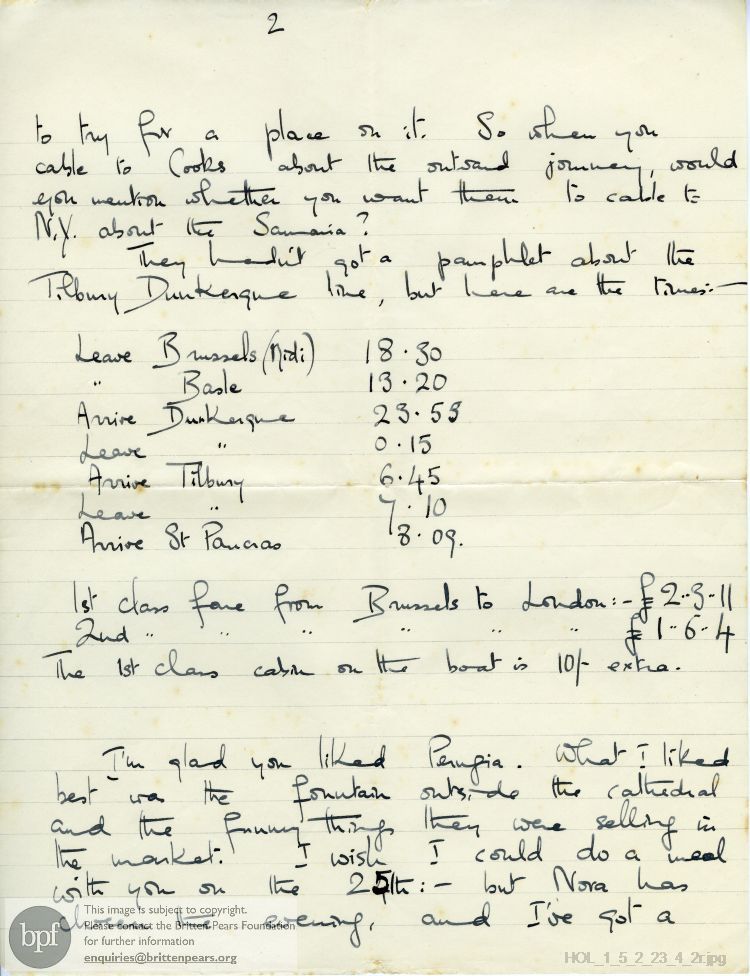 2
to try for a place on it. So when you
cable to Cooks about the outward journey, would
you mention whether you want them to cable to
N.Y. about the Samaria?
They hadn't got a pamphlet about the
Tilbury Dunkerque line, but here are the times:-
Leave Brussels (Midi) 18.30
" Basle 13.20
Arrive Dunkerque 23.53
Leave " 0.15
Arrive Tilbury 6.45
Leave " 7.10
Arrive St Pancras 8.09.
1st class fare from Brussels to London:- £2-3-11
2nd " " " " " " £1-6-4
The 1st class cabin on the boat is 10/- extra.
I'm glad you liked Perugia. What I liked
best was the fountain outside the cathedral
and the funny things they were selling in
the market. I wish I could do a meal
with you on the 25th:- but Nora has
chosen the evening, and I've got a
bpf
This image is subject to copyright.
Please contact the Britten-Pears Foundation
for further information
enquiries@brittenpears.org
HOL_1_5_2_23_4_2r.jpg